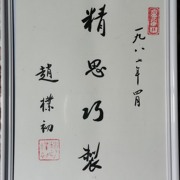 一九八二年四月
精思巧製
趙樸初